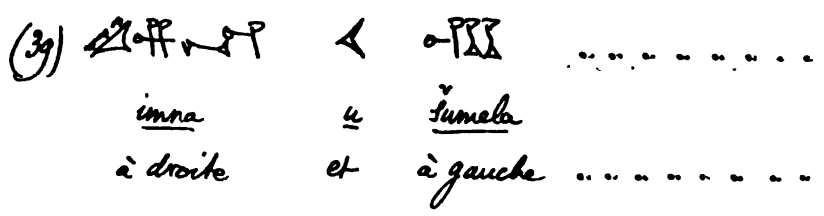 (39) 𒌋 . . . . . . . .
imna u šumela
à droite et à gauche . . . . . . . .